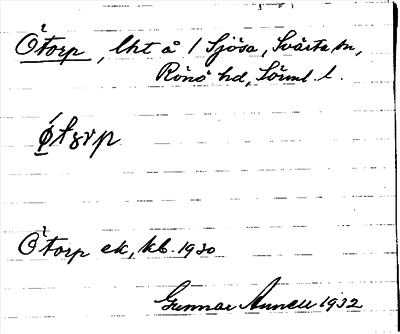 Ötorp, lht å / Sjösa, Svärta sn,
Rönö hd, Sörml. l.
ǿtorp
Ötorp ek, kb. 1930
Gunnar 1932